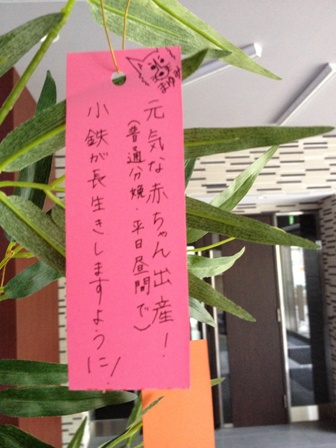 元気な赤ちゃん出産！
（普通分娩・平日昼間で）
小鉄が長生きしますように！